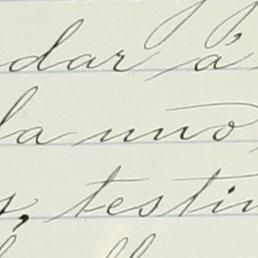 dar á
la uno
s, testin